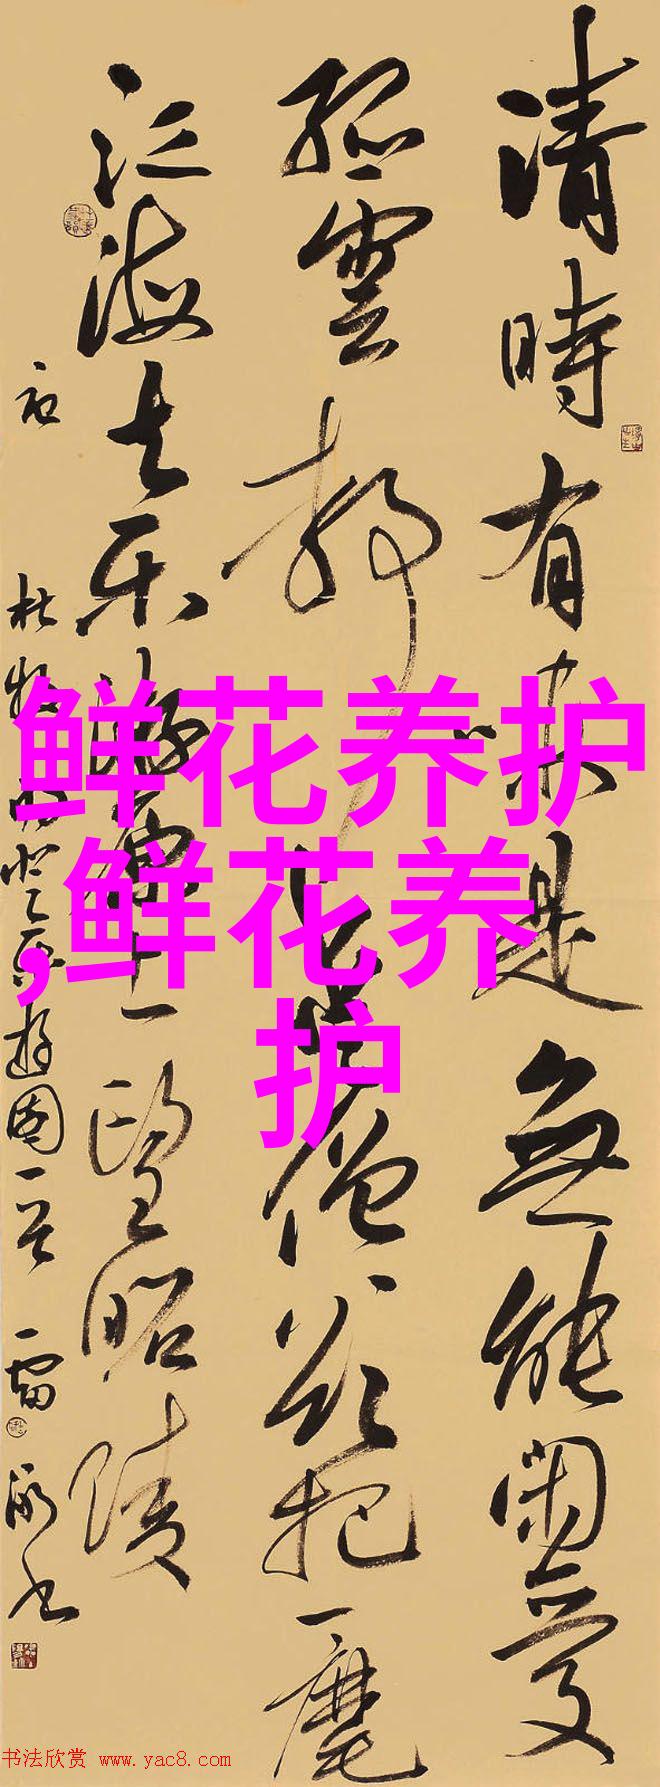 清時有味是無能閑愛
孤雲静愛僧欲把一麾
江海去乐游原上望昭陵
杜牧登乐游園一首
鲜花养护
,鲜花养
护
书法欣赏 www.yac8.com